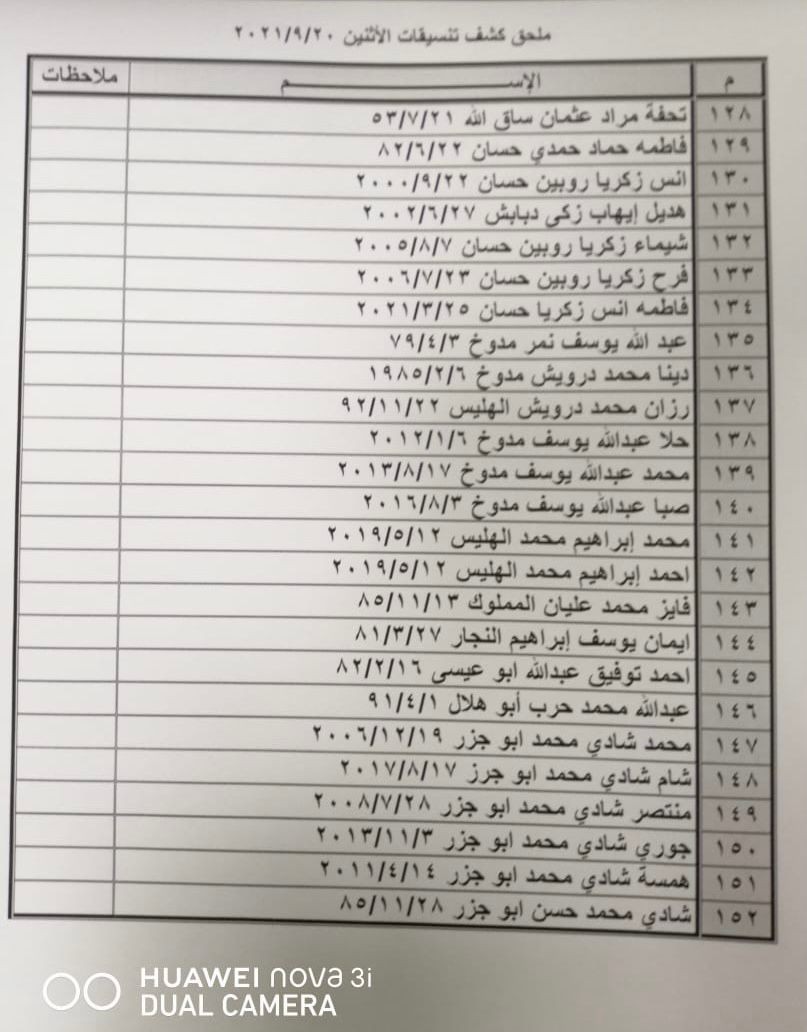 ملحق كشف تنسيقات الأثنين ٢٠٢١/٩/٢٠
م الإســـــم ملاحظات
١٢٨ تحفة مراد عثمان ساق الله ٥٣/٧/٢١
١٢٩ فاطمه حماد حمدي حسان ٨٢/٦/٢٢
١٣٠ انس زكريا روبين حسان ٢٠٠٠/٩/٢٢
١٣١ هديل إيهاب زكى دبابش ٢٠٠٢/٦/٢٧
١٣٢ شيماء زكريا روبين حسان ٢٠٠٥/٨/٧
١٣٣ فرح زكريا روبين حسان ٢٠٠٦/٧/٢٣
١٣٤ فاطمه انس زكريا حسان ٢٠٢١/٣/٢٥
١٣٥ عبد الله يوسف نمر مدوخ ٧٩/٤/٣
١٣٦ دينا محمد درويش مدوخ ١٩٨٥/٢/٦
١٣٧ رزان محمد درويش الهليس ٩٢/١١/٢٢
١٣٨ حلا عبدالله يوسف مدوخ ٢٠١٢/١/٦
١٣٩ محمد عبدالله يوسف مدوخ ٢٠١٣/٨/١٧
١٤٠ صبا عبدالله يوسف مدوخ ٢٠١٦/٨/٣
١٤١ محمد إبراهيم محمد الهليس ٢٠١٩/٥/١٢
١٤٢ احمد إبراهيم محمد الهليس ٢٠١٩/٥/١٢
١٤٣ فايز محمد عليان المملوك ٨٥/١١/١٣
١٤٤ ايمان يوسف إبراهيم النجار ٨١/٣/٢٧
١٤٥ احمد توفيق عبدالله ابو عيسى ٨٢/٢/١٦
١٤٦ عبدالله محمد حرب أبو هلال ٩١/٤/١
١٤٧ محمد شادي محمد ابو جزر ٢٠٠٦/١٢/١٩
١٤٨ شام شادي محمد ابو جرز ٢٠١٧/٨/١٧
١٤٩ منتصر شادي محمد ابو جزر ٢٠٠٨/٧/٢٨
١٥٠ جوري شادي محمد ابو جزر ٢٠١٣/١١/٣
١٥١ همسة شادي محمد ابو جزر ٢٠١١/٤/١٤
١٥٢ شادي محمد حسن ابو جزر ٨٥/١١/٢٨
HUAWEI nova 3i
DUAL CAMERA